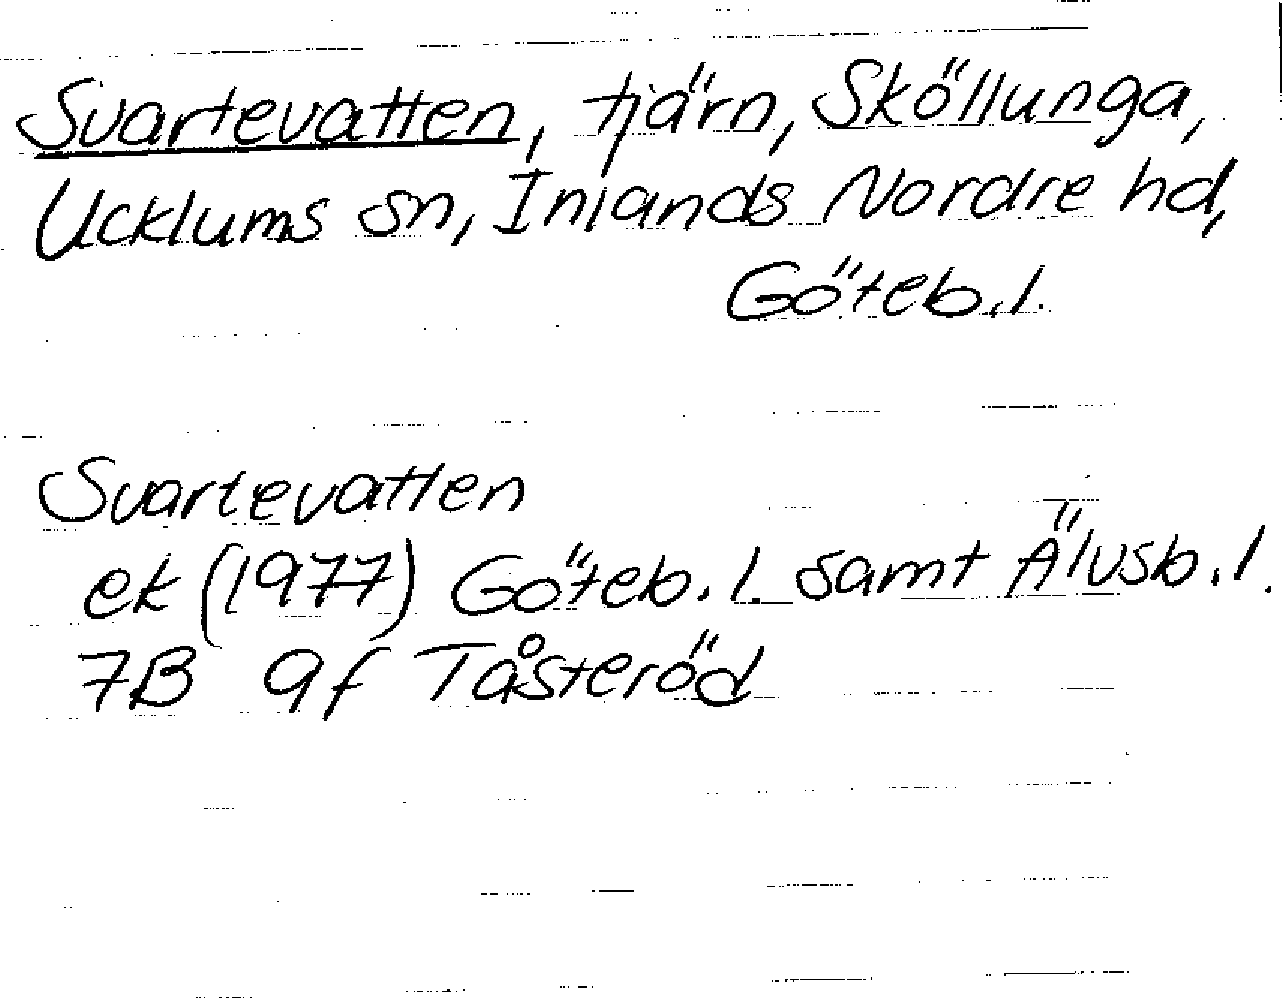 Svartevatten, tjärn, Sköllunga,
Ucklums sn, Inlands Nordre hd,
Göteb.l.
Svartevatten
ek (1977) Göteb.l. samt Älvsb.l.
7B 9f Tåsteröd